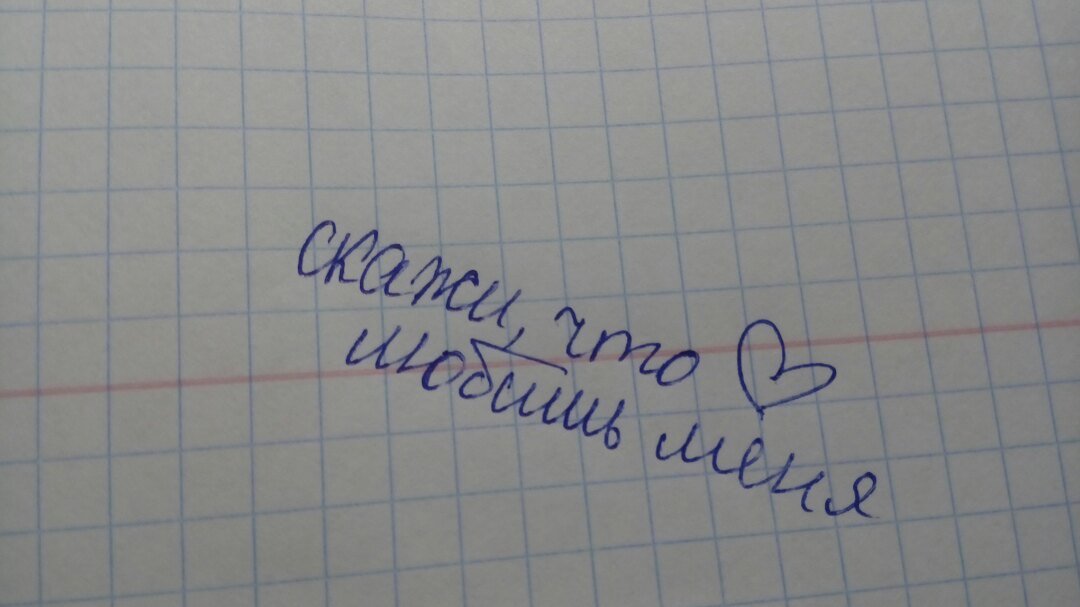 скажи, что
любишь меня